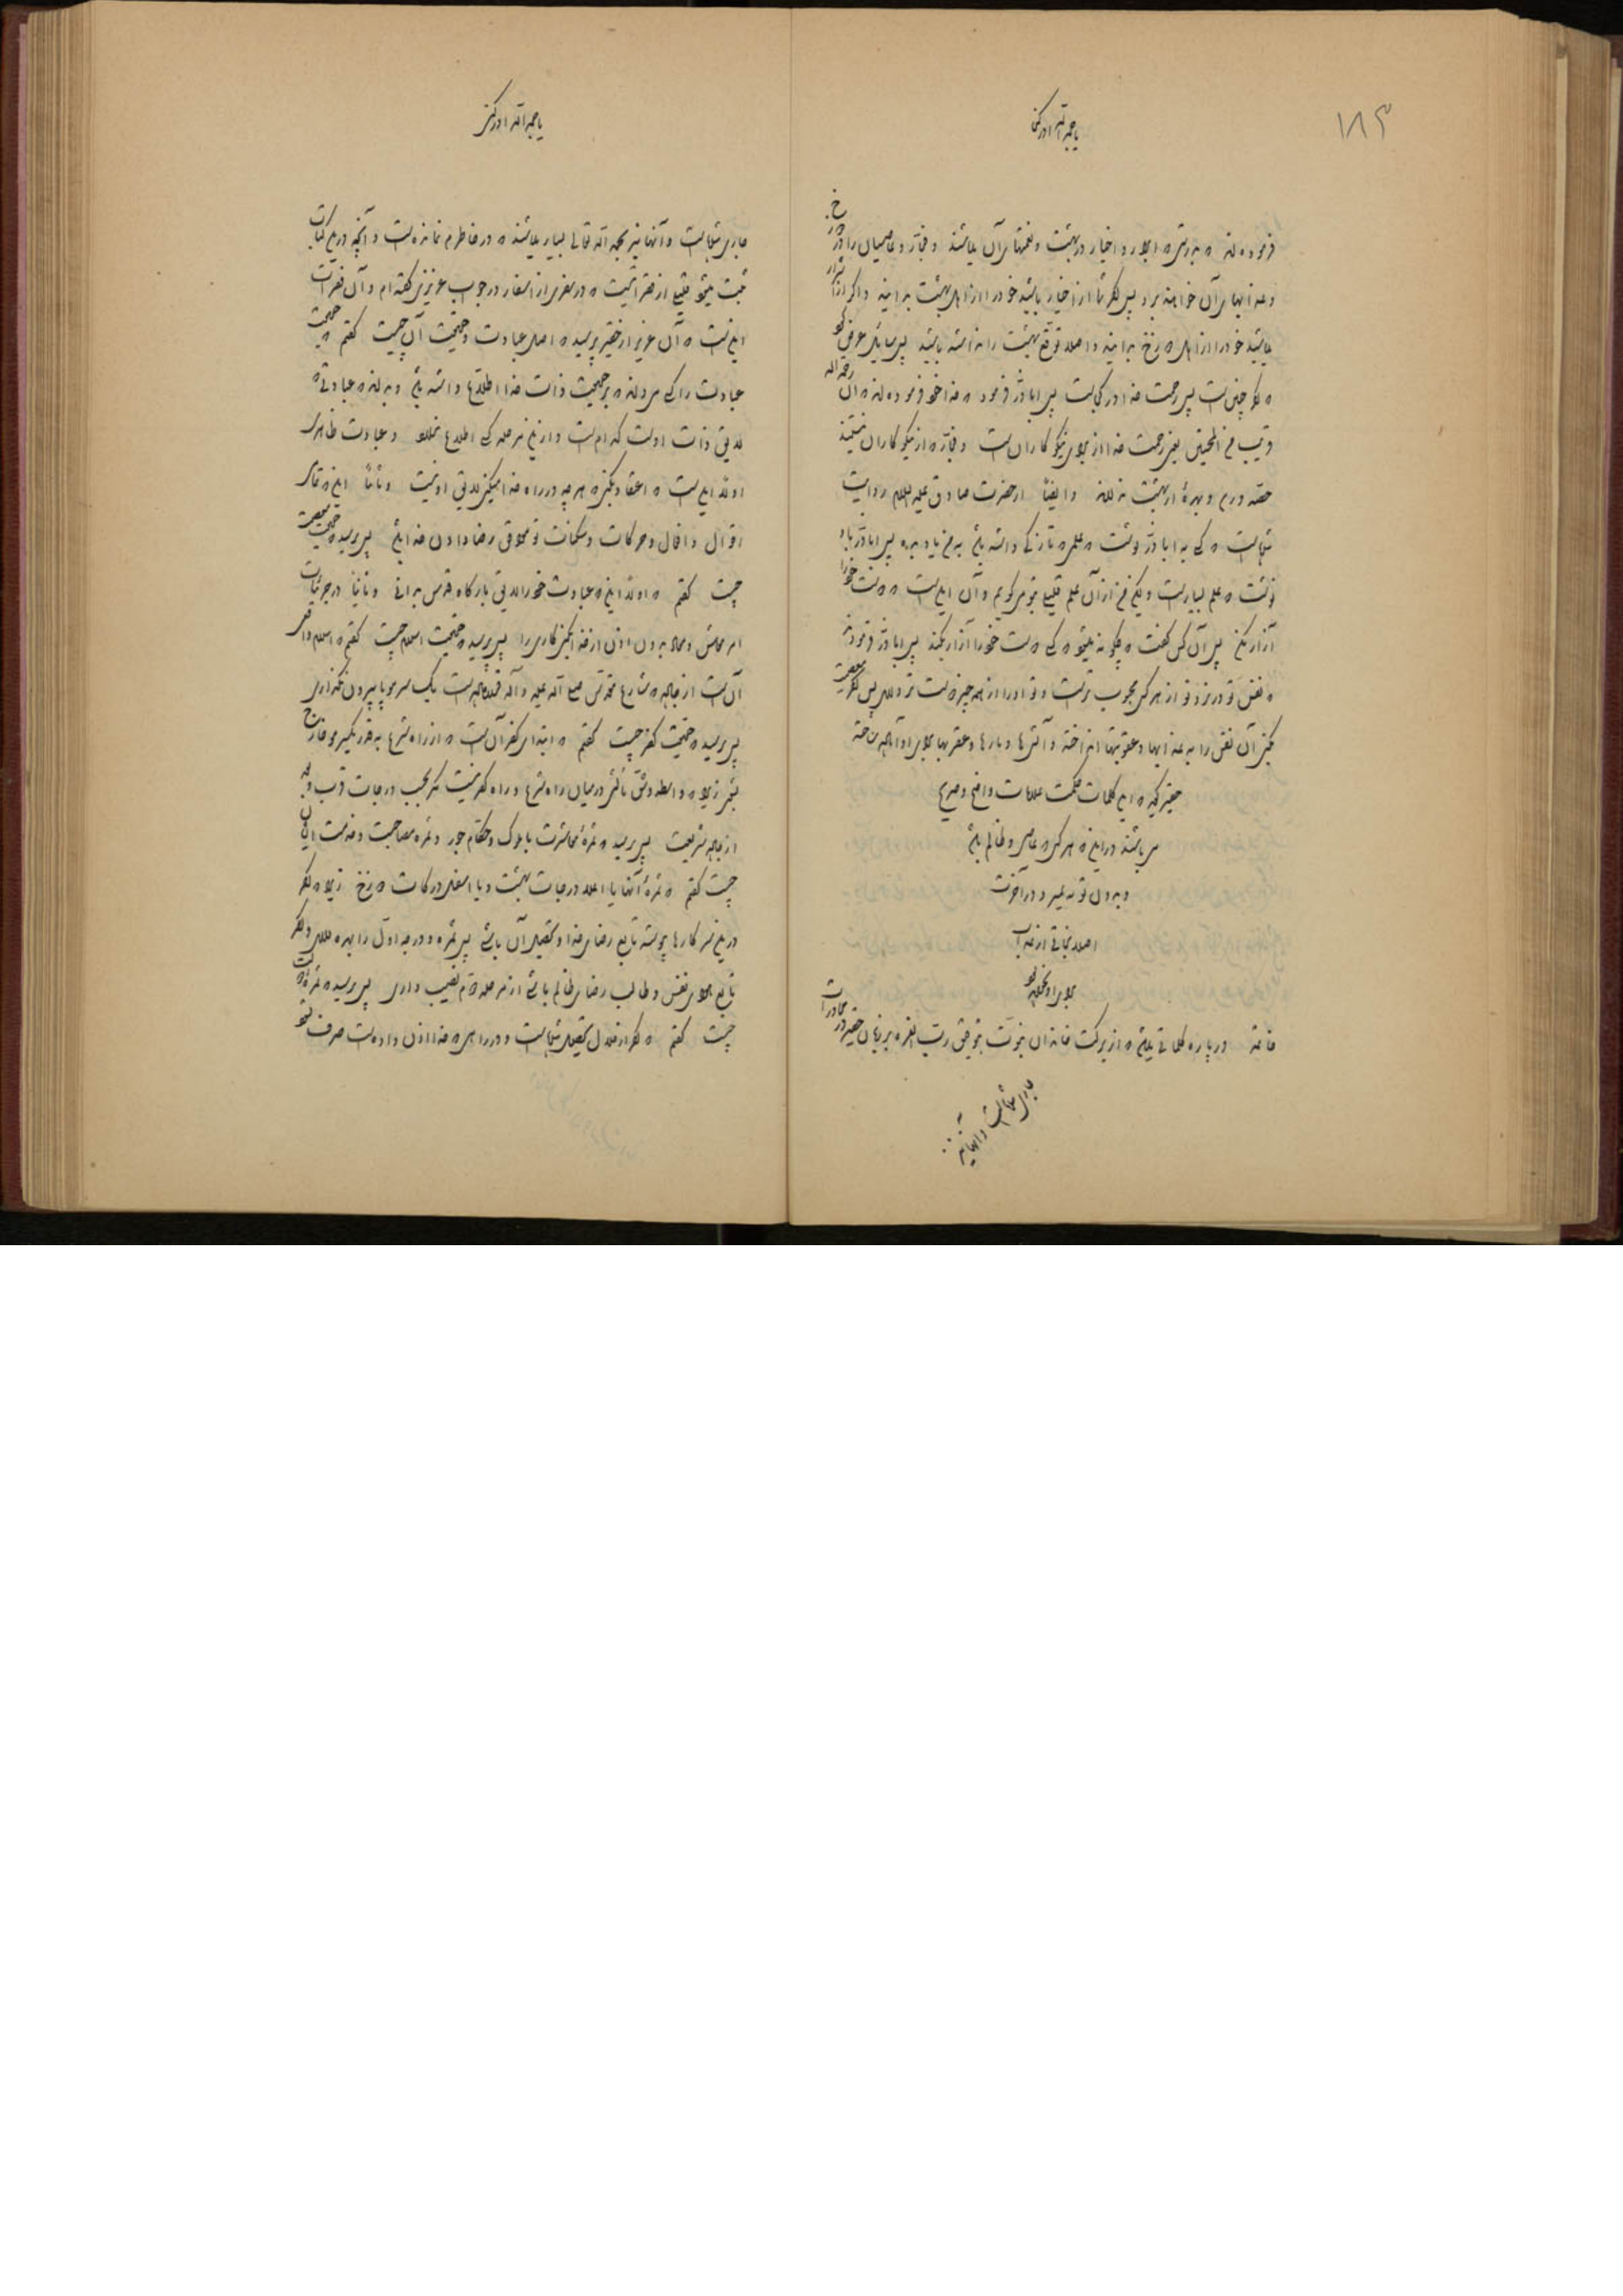 ۱۸۴
یا حجة الله ادرکنی
فرموده اند که بدرستی که ابرار و اخیار در بهشت و نعمتهای آن میباشند و فجّار و عاصیان را در دوزخ
و عذابهای آن خواهند برد پس اگر شما از اخیار باشید خود را از اهل بهشت بدانید و اگر از اشرار
میباشید خود را از اهل دوزخ بدانید و اصلا توقع بهشت را نداشته باشید پس سایل عرض کرد
که اگر چنین است پس رحمت خدا در کجاست پس اباذر فرمود که خدا خود فرموده اند که انّ رحمة الله
قریب من المحسنین یعنی رحمت خدا از برای نیکوکاران است و فجّار که از نیکوکاران نیستند
حصّه و بهرهٔ از بهشت ندارند وایضاً از حضرت صادق علیه السلام روایت
شده است که کسی به اباذر نوشت که علم تازگی داشته باشد به من یاد بده پس اباذر باو
نوشت که علم بسیار است ولیکن من از آن علم قلیلی بتو میگویم و آن این است که دوست خود را
آزار مکن پس آن کس گفت که چگونه میشود که کسی دوست خود را آزار بکند پس اباذر فرمود
که نفس تو در نزد تو از هر کس محبوب تر است و تو او را از همه چیز دوست تر داری پس اگر معصیت
بکنی آن نفس را به عذابها و عقوبتها انداخته و آتشها و مارها و عقربها برای او آماده ساخته
حقیر گوید که این کلمات حکمت علامات واضح و صریح
می باشند در اینکه هر کس که عاصی و ظالم باشد
و بدون توبه بمیرد در آخرت
اصلا نجاتی از عذاب
برای او نخواهد بود
خاتمه در پاره کلماتی میباشد که از برکت خاندان نبوّت بتوفیق ربّ العزه بر زبان حقیر در محاورات
جاری شده است و آنها نیز
یا حجة الله ادرکنی
جاری شده است و آنها نیز بحمد الله تعالی بسیار میباشند که در خاطرم نمانده است و آنچه در این کتاب
ثبت میشود قلیلی از فقراتیست که در سفری از اسفار در جواب عزیزی گفته ام و آن فقرات
این است که آن عزیز از حقیر پرسید که اصل عبادت و حقیقت آن چیست گفتم که حقیقت
عبادت را کسی میداند که بر حقیقت ذات خدا اطلاع داشته باشد و بداند که عبادتی که
لایق ذات اوست کدام است و از این مرحله کسی اطلاع ندارد و عبادت ظاهری
اولا این است که اعتقاد بکنی که هر چه در راه خدا میکنی لایق او نیست و ثانیا اینکه تمام
اقوال و افعال و حرکات و سکنات تو موافق رضا دادن خدا باشد پس پرسید که حقیقت معصیت
چیست گفتم که اولا اینکه عبادت خود را لایق بارگاه قدس بدانی و ثانیا در جزئیات
امر معاش و معاد بدون اذن از خدا بکنی کاری را پس پرسید که حقیقت اسلام چیست گفتم که اسلام واقعی
آن است از جاده که شارع مقدس صلی الله علیه و آله قرار داده است یک سر مو پا بیرون نگذاری
پس پرسید که حقیقت کفر چیست گفتم که ابتدای کفر آن است که از راه شرع بقدر یک سر مو خارج
بشوی زیرا که واسطه و شق ثالثی در میان راه شرع و راه کفر نیست مگر بحسب درجات قرب و بعد
از جاده شریعت پس پرسید که ثمرهٔ معاشرت با ملوک و حکام جور و ثمره مصاحبت و خدمت ایشان
چیست گفتم که ثمرهٔ آنها یا اعلا درجات بهشت و یا اسفل درکات دوزخ زیرا که اگر
در این سر کارها پیوسته تابع رضای خدا و تحصیل آن باشی پس ثمره و درجه اول را بهره داری و اگر
تابع هوای نفس و طالب رضای ظالم باشی از مرحله دوّم نصیب داری پس پرسید که ثمره
چیست گفتم که اگر از حلال تحصیل شده است و در راهی که خدا اذن داده است صرف شود